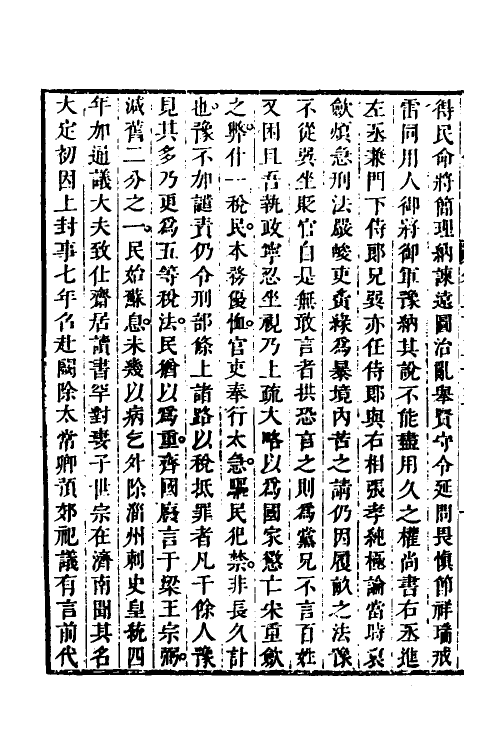 得民命將簡理納諫遠圖治亂舉賢守令延問畏慎節祥瑞戒
雷同用人御將御軍豫納其說不能盡用久之權尚書右丞進
左丞兼門下侍郎兄巽亦任侍郎與右相張孝純極論當時哀
斂煩急刑法嚴峻吏夤緣為暴境內苦之請仍因履畝之法豫
不從巽坐貶官自是無敢言者拱恐言之則為黨兄不言百姓
又困且吾執政寧忍坐視乃上疏大略以為國家懲亡宋重斂
之弊什一稅民本務優恤官吏奉行太急驅民犯禁非長久計
也豫不加譴責仍令刑部條上諸路以稅抵罪者凡千餘人豫
見其多乃更為五等稅法民猶以為重齊國廢言于梁王宗弼
減舊二分之一民始蘇息未幾以病乞外除淄州刺史皇統四
年加通議大夫致仕齋居讀書罕對妻子世宗在濟南聞其名
大定初因上封事七年名赴闕除太常卿預郊祀議有言前代